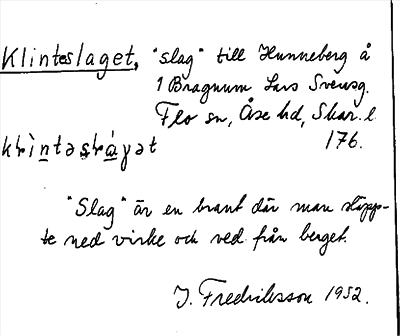 Klinteslaget, "slag" till Hunneberg å
1 Bragnum Lars Svensg.
Flo sn, Åse hd, Skar. l.
176.
"Slag" är en brant där man släpp-
te ned virke och ved från berget.
J. Fredriksson 1952.